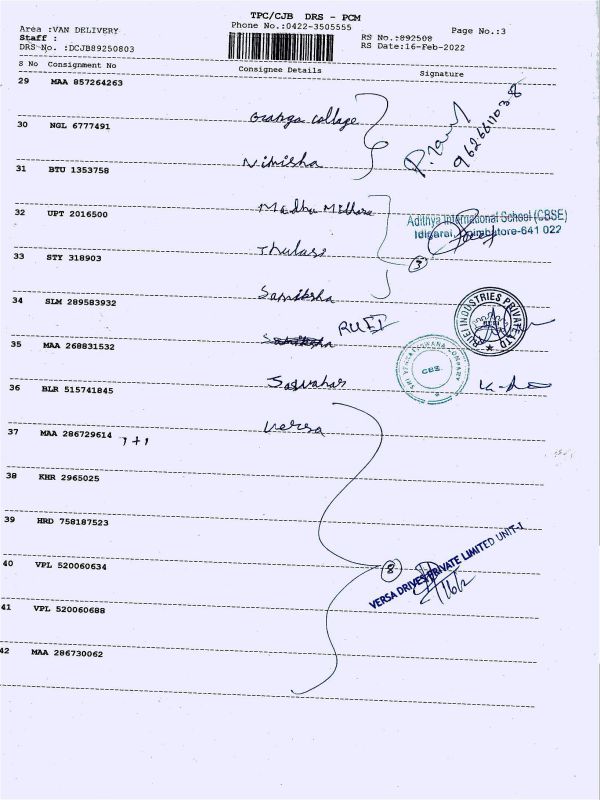 TPC/CJB DRS - PCM
Area :VAN DELIVERY Phone No.:0422-3505555 Page No.:3
Staff : RS No.:892508
DRS No. :DCJB89250803 RS Date:16-Feb-2022
S No Consignment No Consignee Details Signature
29 MAA 857264263
oranga collage
9626611038
30 NGL 6777491
Nimisha
31 BTU 1353758
Madhu Mithora
32 UPT 2016500
Adithya International School (CBSE)
Idigarai, Coimbatore-641 022
Thulasi
33 STY 318903
3
Samiksha
34 SLM 289583932
RUEI
RUEI INDUSTRIES PRIVATE LTD
35 MAA 268831532
CBE.
Jaswahar
36 BLR 515741845
versa
37 MAA 286729614 1+1
38 KHR 2965025
39 HRD 758187523
40 VPL 520060634
8
VERSA DRIVES PRIVATE LIMITED UNIT-I
16/2
41 VPL 520060688
42 MAA 286730062